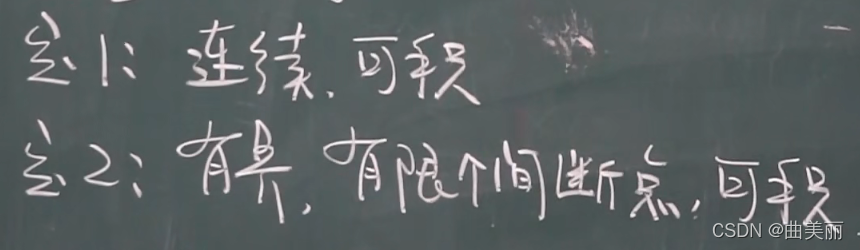 定1: 连续, 可积
定2: 有界, 有限个间断点, 可积
CSDN @曲美丽